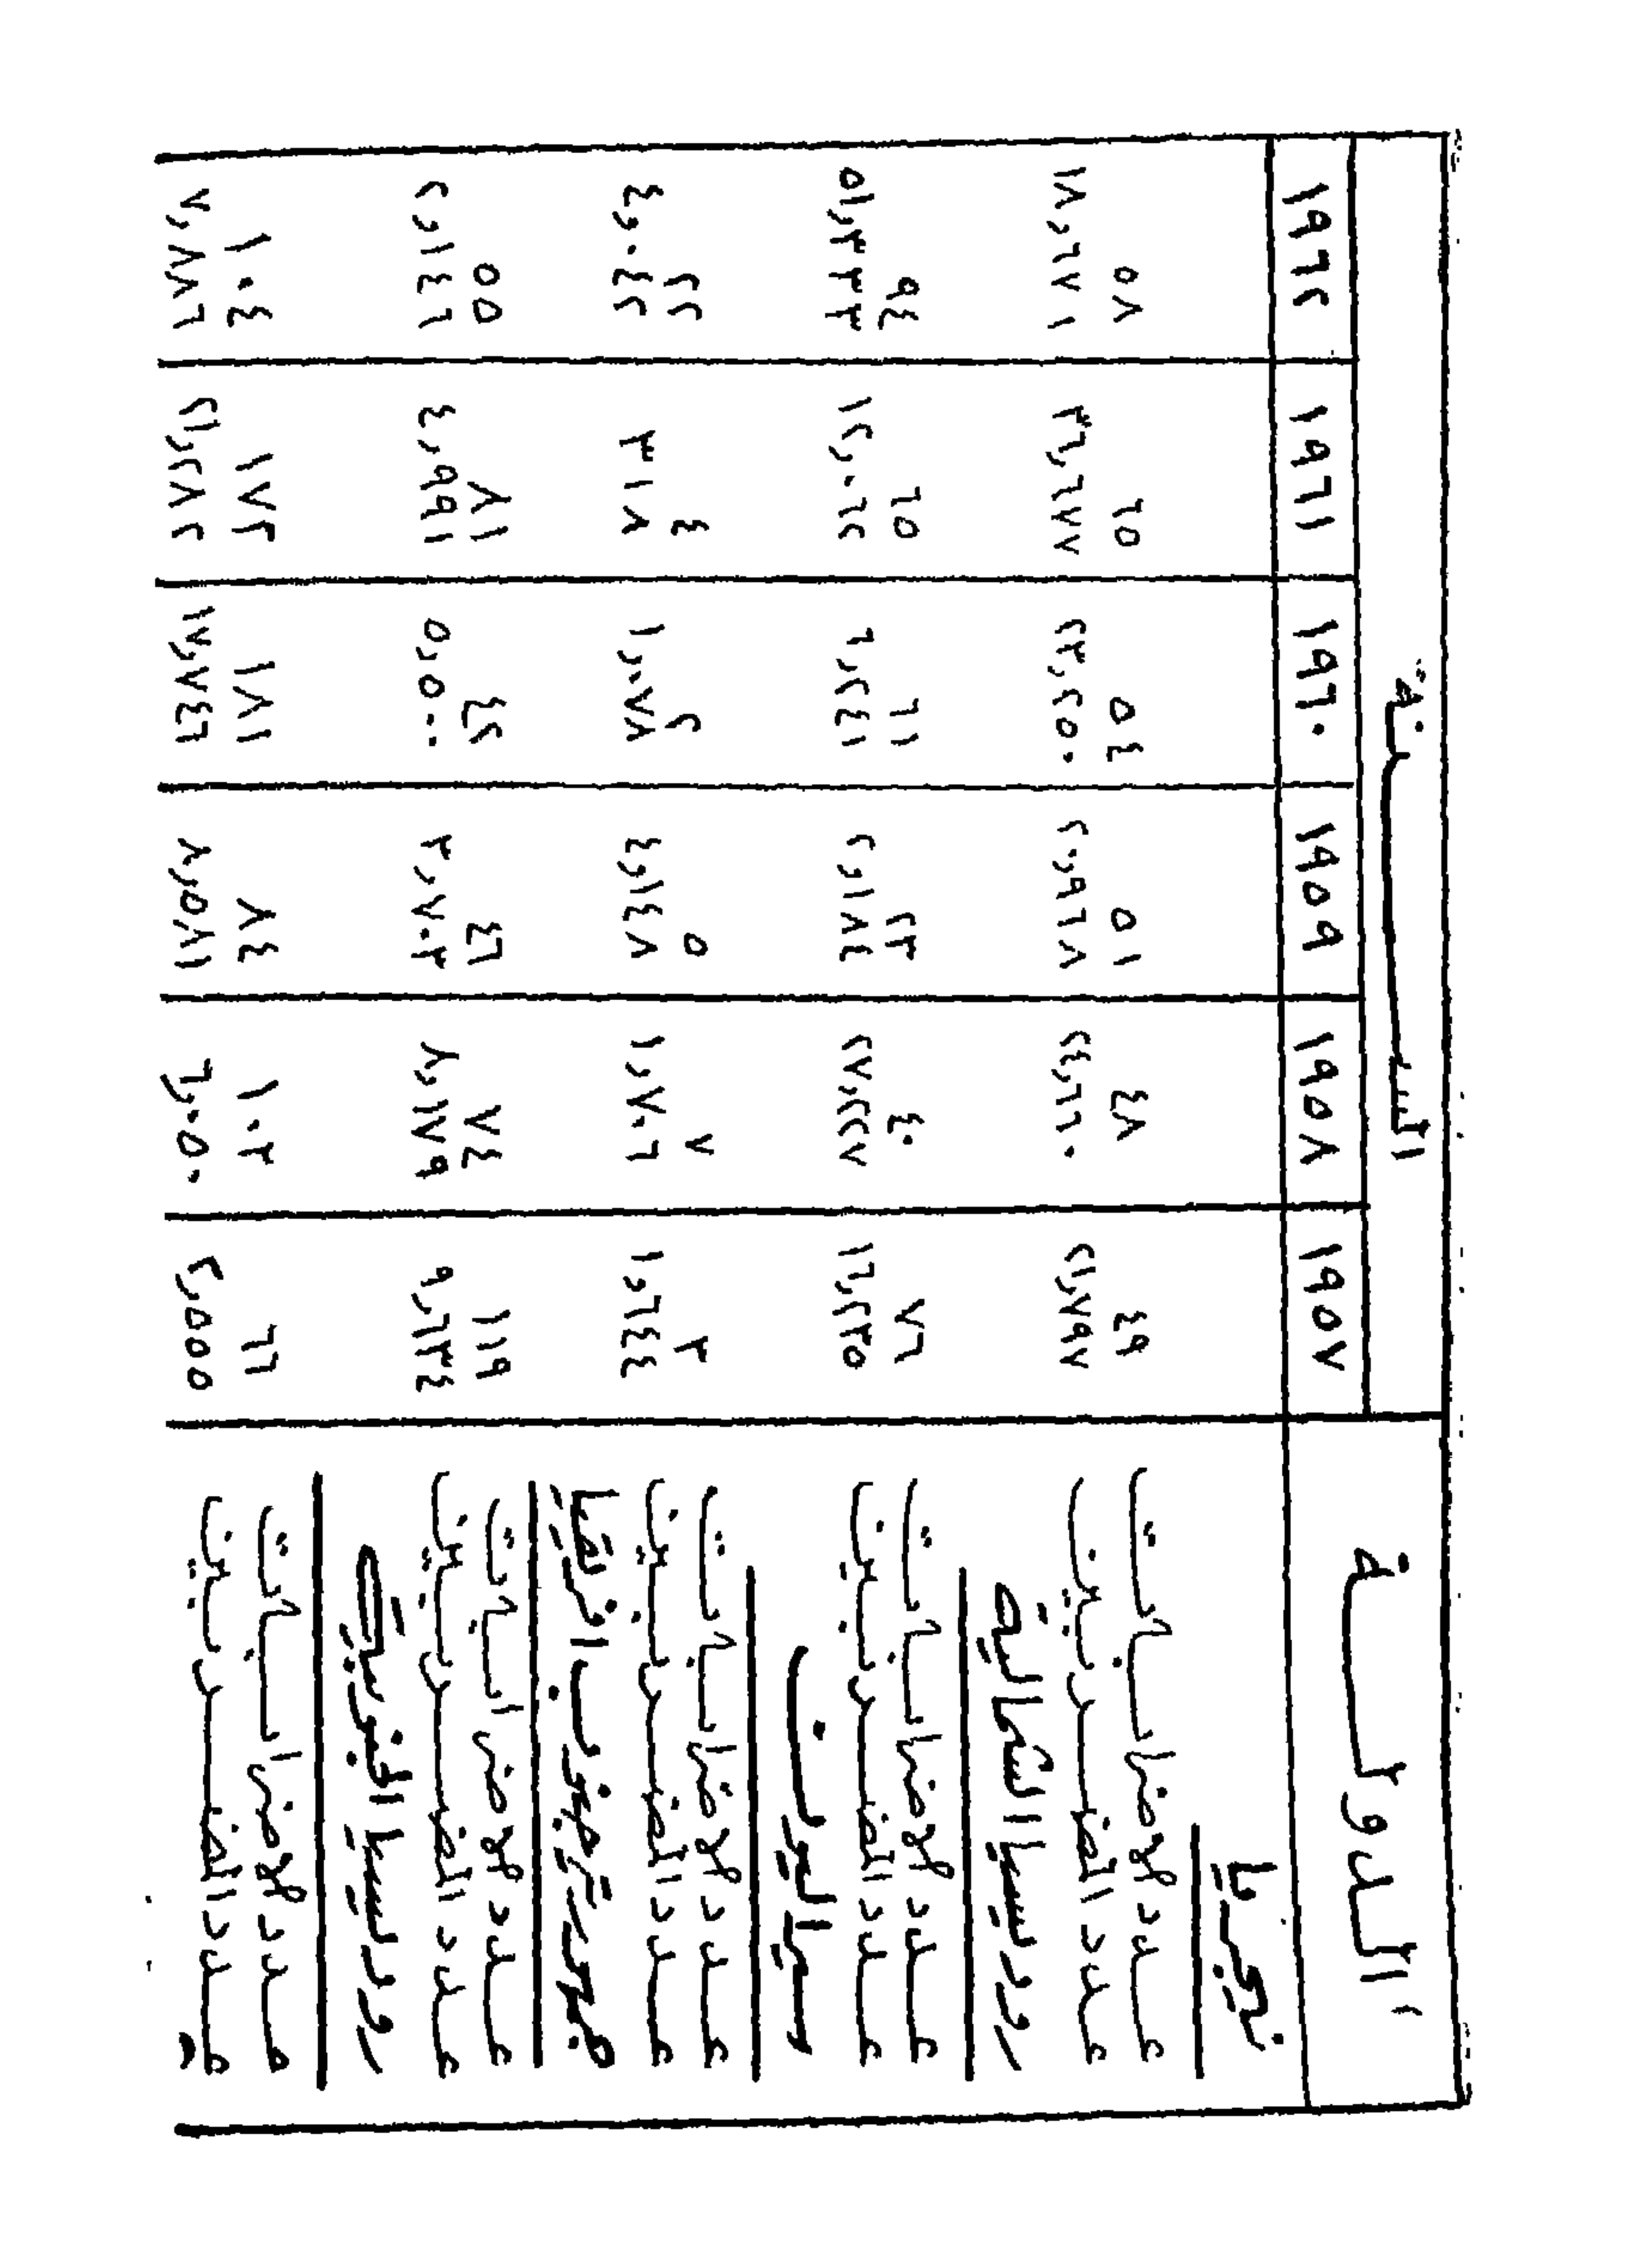 الدولة السنة
١٩٥٧ ١٩٥٨ ١٩٥٩ ١٩٦٠ ١٩٦١ ١٩٦٢
نيجريا
عدد الاضرابات ٤٩ ٤٨ ٥١ ٥٤ ٦٥ ٥٨
عدد المضربين ٢١,٧٩٧ ٢٤,٦٦٠ ٢٠,٩٦٨ ٢٣,٢٥٠ ٣٦,٦٧٧ ١٨,٦٧١
روديسيا الشمالية
عدد الاضرابات ٧٦ ٤٠ ٢٣ ٦١ ٦٥ ٩٤
عدد المضربين ١٦,٢٣٥ ٢٧,٢٢٧ ٢,١٨٤ ٦,٢٤١ ١٢,٠٦٢ ٥١,٣٣٣
سيراليون
عدد الاضرابات ٣ ٧ ٥ ٢ ٤ ٢٢
عدد المضربين ١,٦٤٤ ١,٧٠٦ ٤,١٤٨ ١,٠٧٨ ٣١٨ ٤,٠٤٢
جمهورية جنوب افريقيا
عدد الاضرابات ١١٩ ٧٤ ٤٦ ٤٢ ٨١ ٥٥
عدد المضربين ٩,٦٣٤ ٨,١٧٩ ٣,٧٠٣ ٥,٥٠٠ ٤,٩٩١ ٢,١٤٦
روديسيا الجنوبية
عدد الاضرابات ٦٦ ١٠٣ ٨٤ ١٨١ ١٨٢ ١٠٤
عدد المضربين ٢,٥٥٥ ٦,٠٥٠ ٨,٥٨١ ١٧,٧٤٦ ٢١,٢٨٢ ٧,٨٨٦